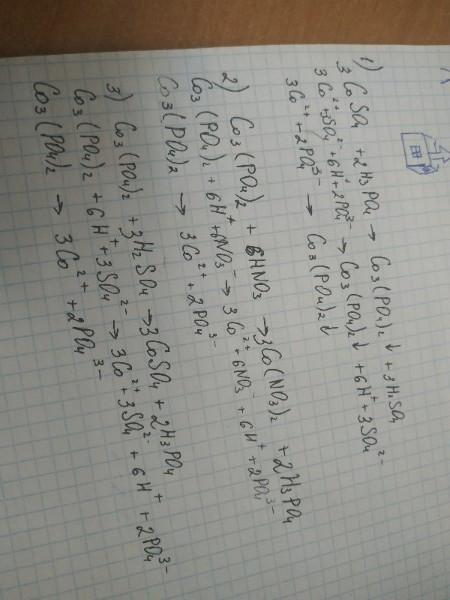 1)
3CoSO4 + 2H3PO4 → Co3(PO4)2↓ + 3H2SO4
3Co²⁺ + 3SO4²⁻ + 6H⁺ + 2PO4³⁻ → Co3(PO4)2↓ + 6H⁺ + 3SO4²⁻
3Co²⁺ + 2PO4³⁻ → Co3(PO4)2↓
2) Co3(PO4)2 + 6HNO3 → 3Co(NO3)2 + 2H3PO4
Co3(PO4)2 + 6H⁺ + 6NO3⁻ → 3Co²⁺ + 6NO3⁻ + 6H⁺ + 2PO4³⁻
Co3(PO4)2 → 3Co²⁺ + 2PO4³⁻
3) Co3(PO4)2 + 3H2SO4 → 3CoSO4 + 2H3PO4 +
Co3(PO4)2 + 6H⁺ + 3SO4²⁻ → 3Co²⁺ + 3SO4²⁻ + 6H + 2PO4³⁻
Co3(PO4)2 → 3Co²⁺ + 2PO4³⁻